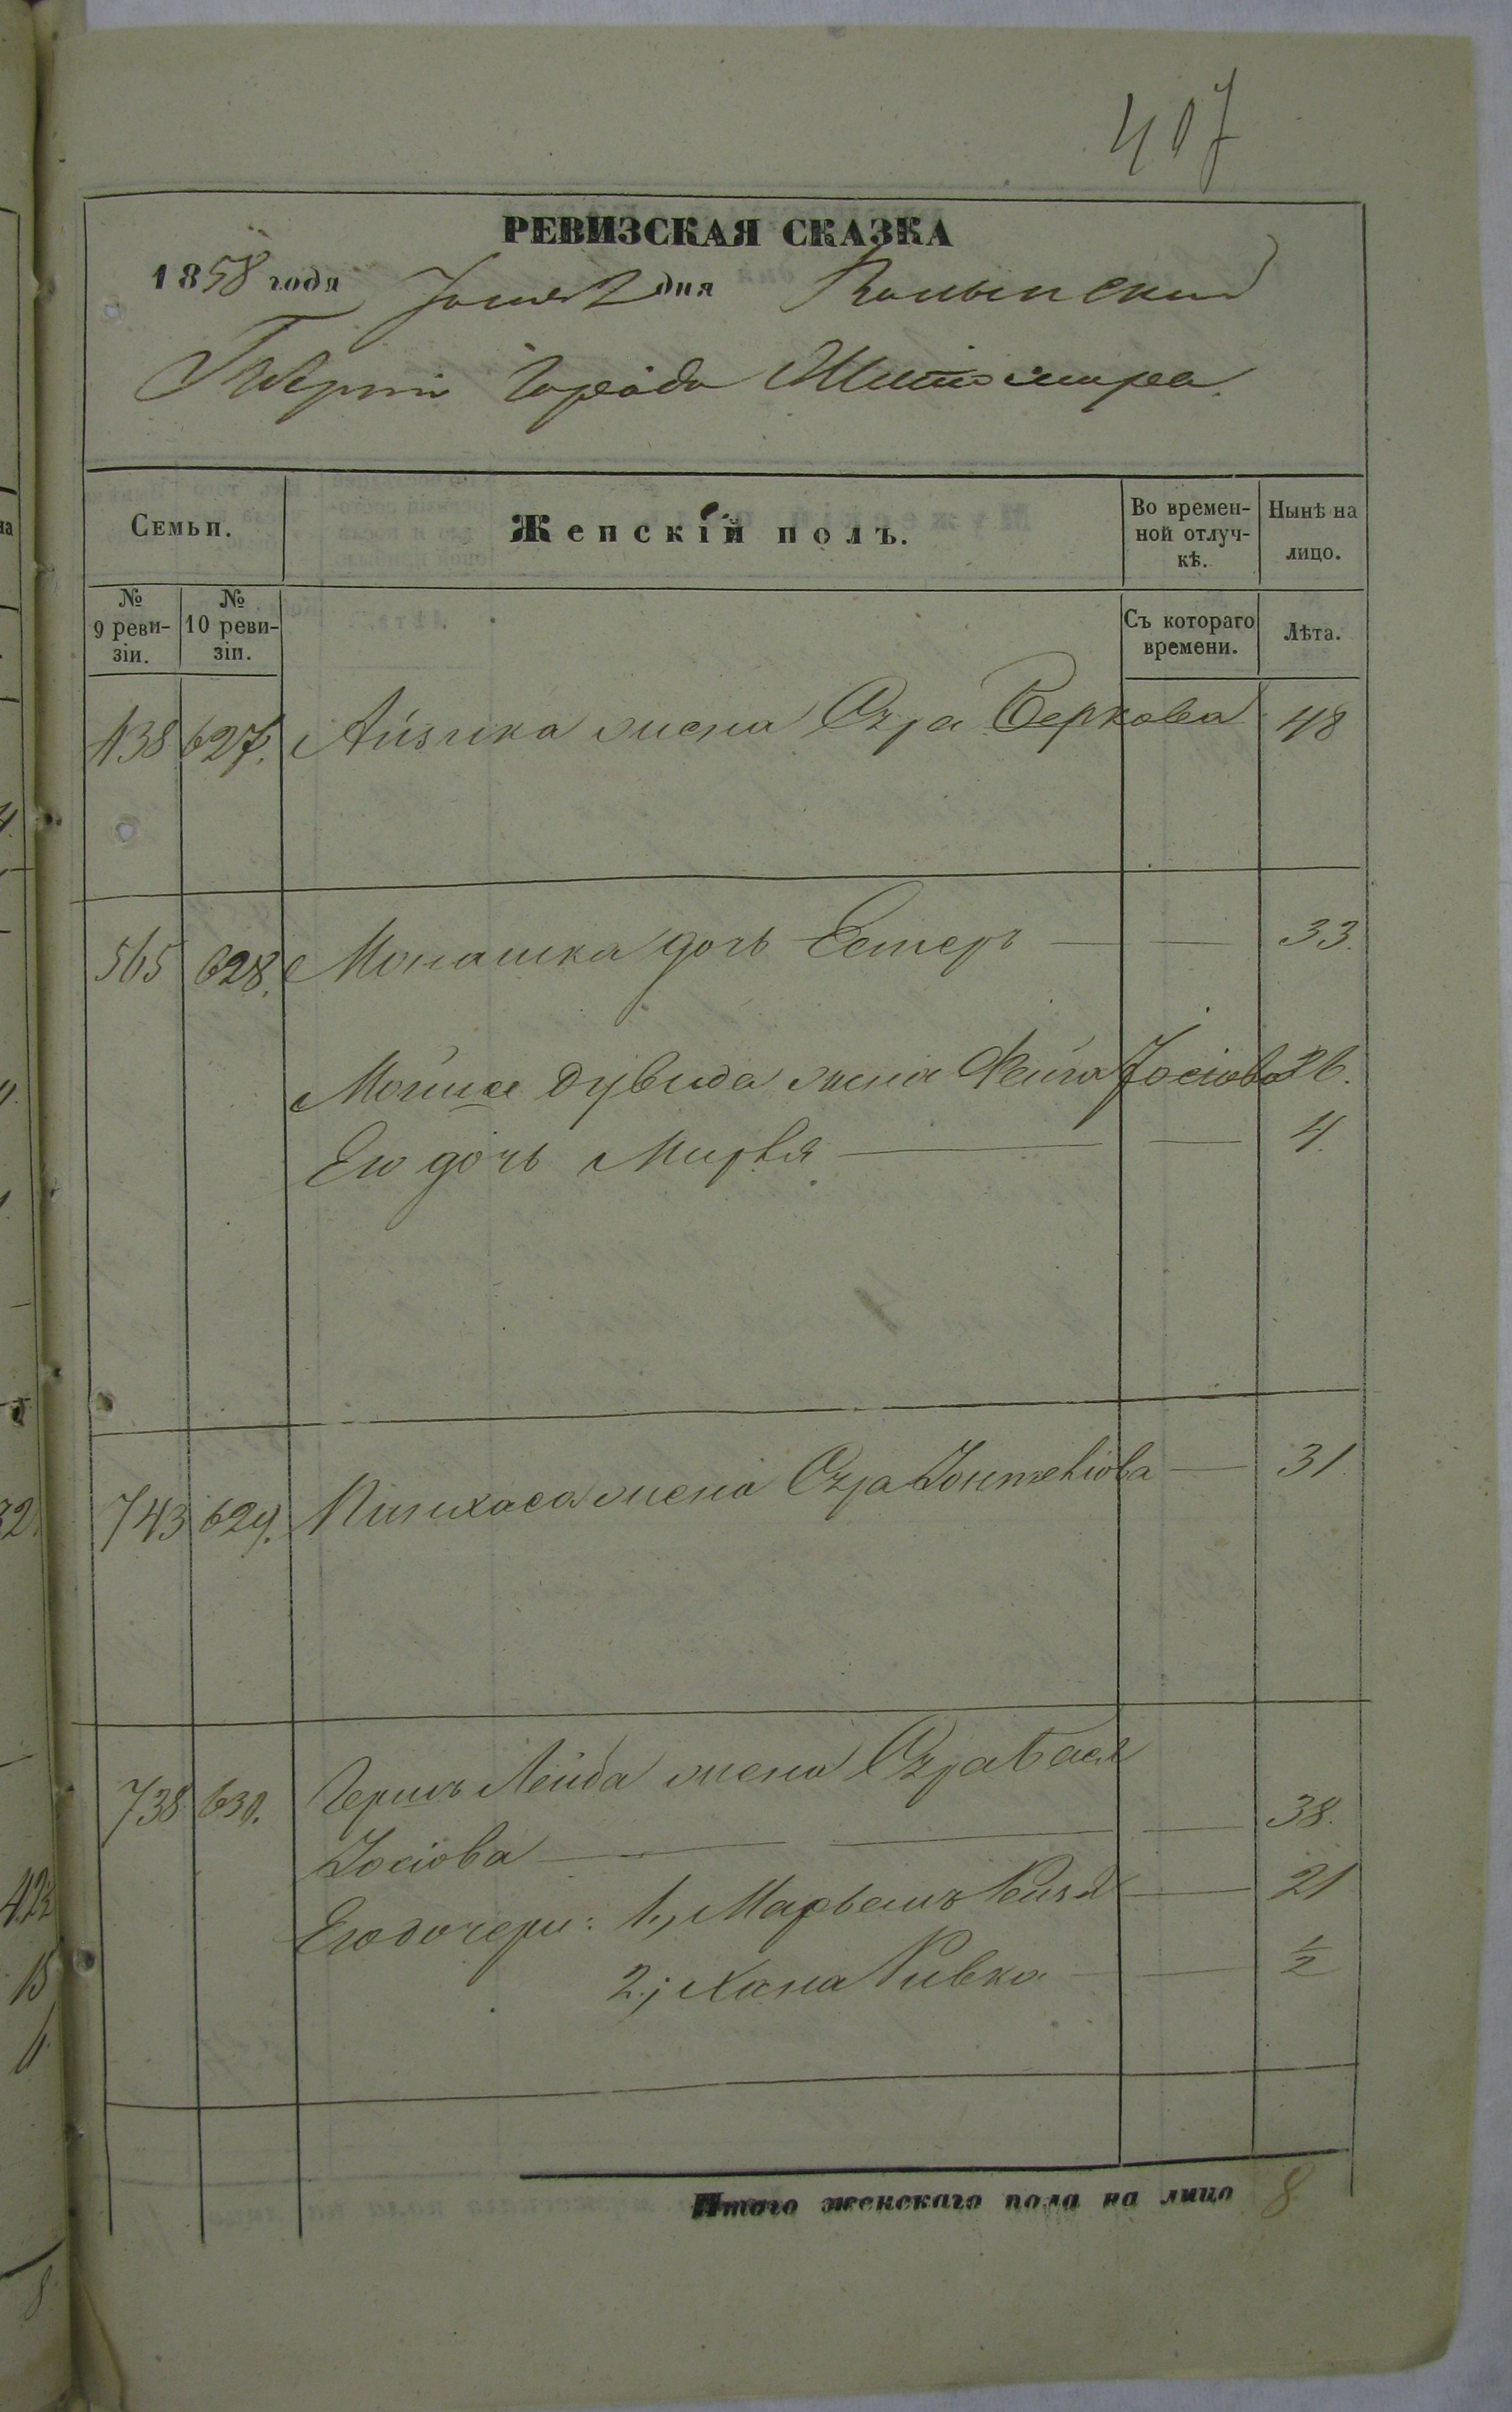 407
РЕВИЗСКАЯ СКАЗКА
1858 года Іюня 2 дня Волынской
Губерніи Города Житомира.
Семьи.
Женскій полъ.
Во времен-
ной отлуч-
кѣ.
Нынѣ на
лицо.
№
9 реви-
зіи.
№
10 реви-
зіи.
Съ котораго
времени.
Лѣта.
438 627. Айзика жена Сура Беркова 48
565 628. Монашка дочь Естеръ 33.
Мошка Дувида жена Фейга Іосіова 26.
Его дочь Мирля 4.
743 629. Пинхаса жена Сура 31
738 630. Гершъ Лейба жена Сура Бася
Іосіова 38.
Его дочери: 1, Марьемъ Рейзя 21
2, Хана Ривка ½
Итого женскаго пола на лицо 8